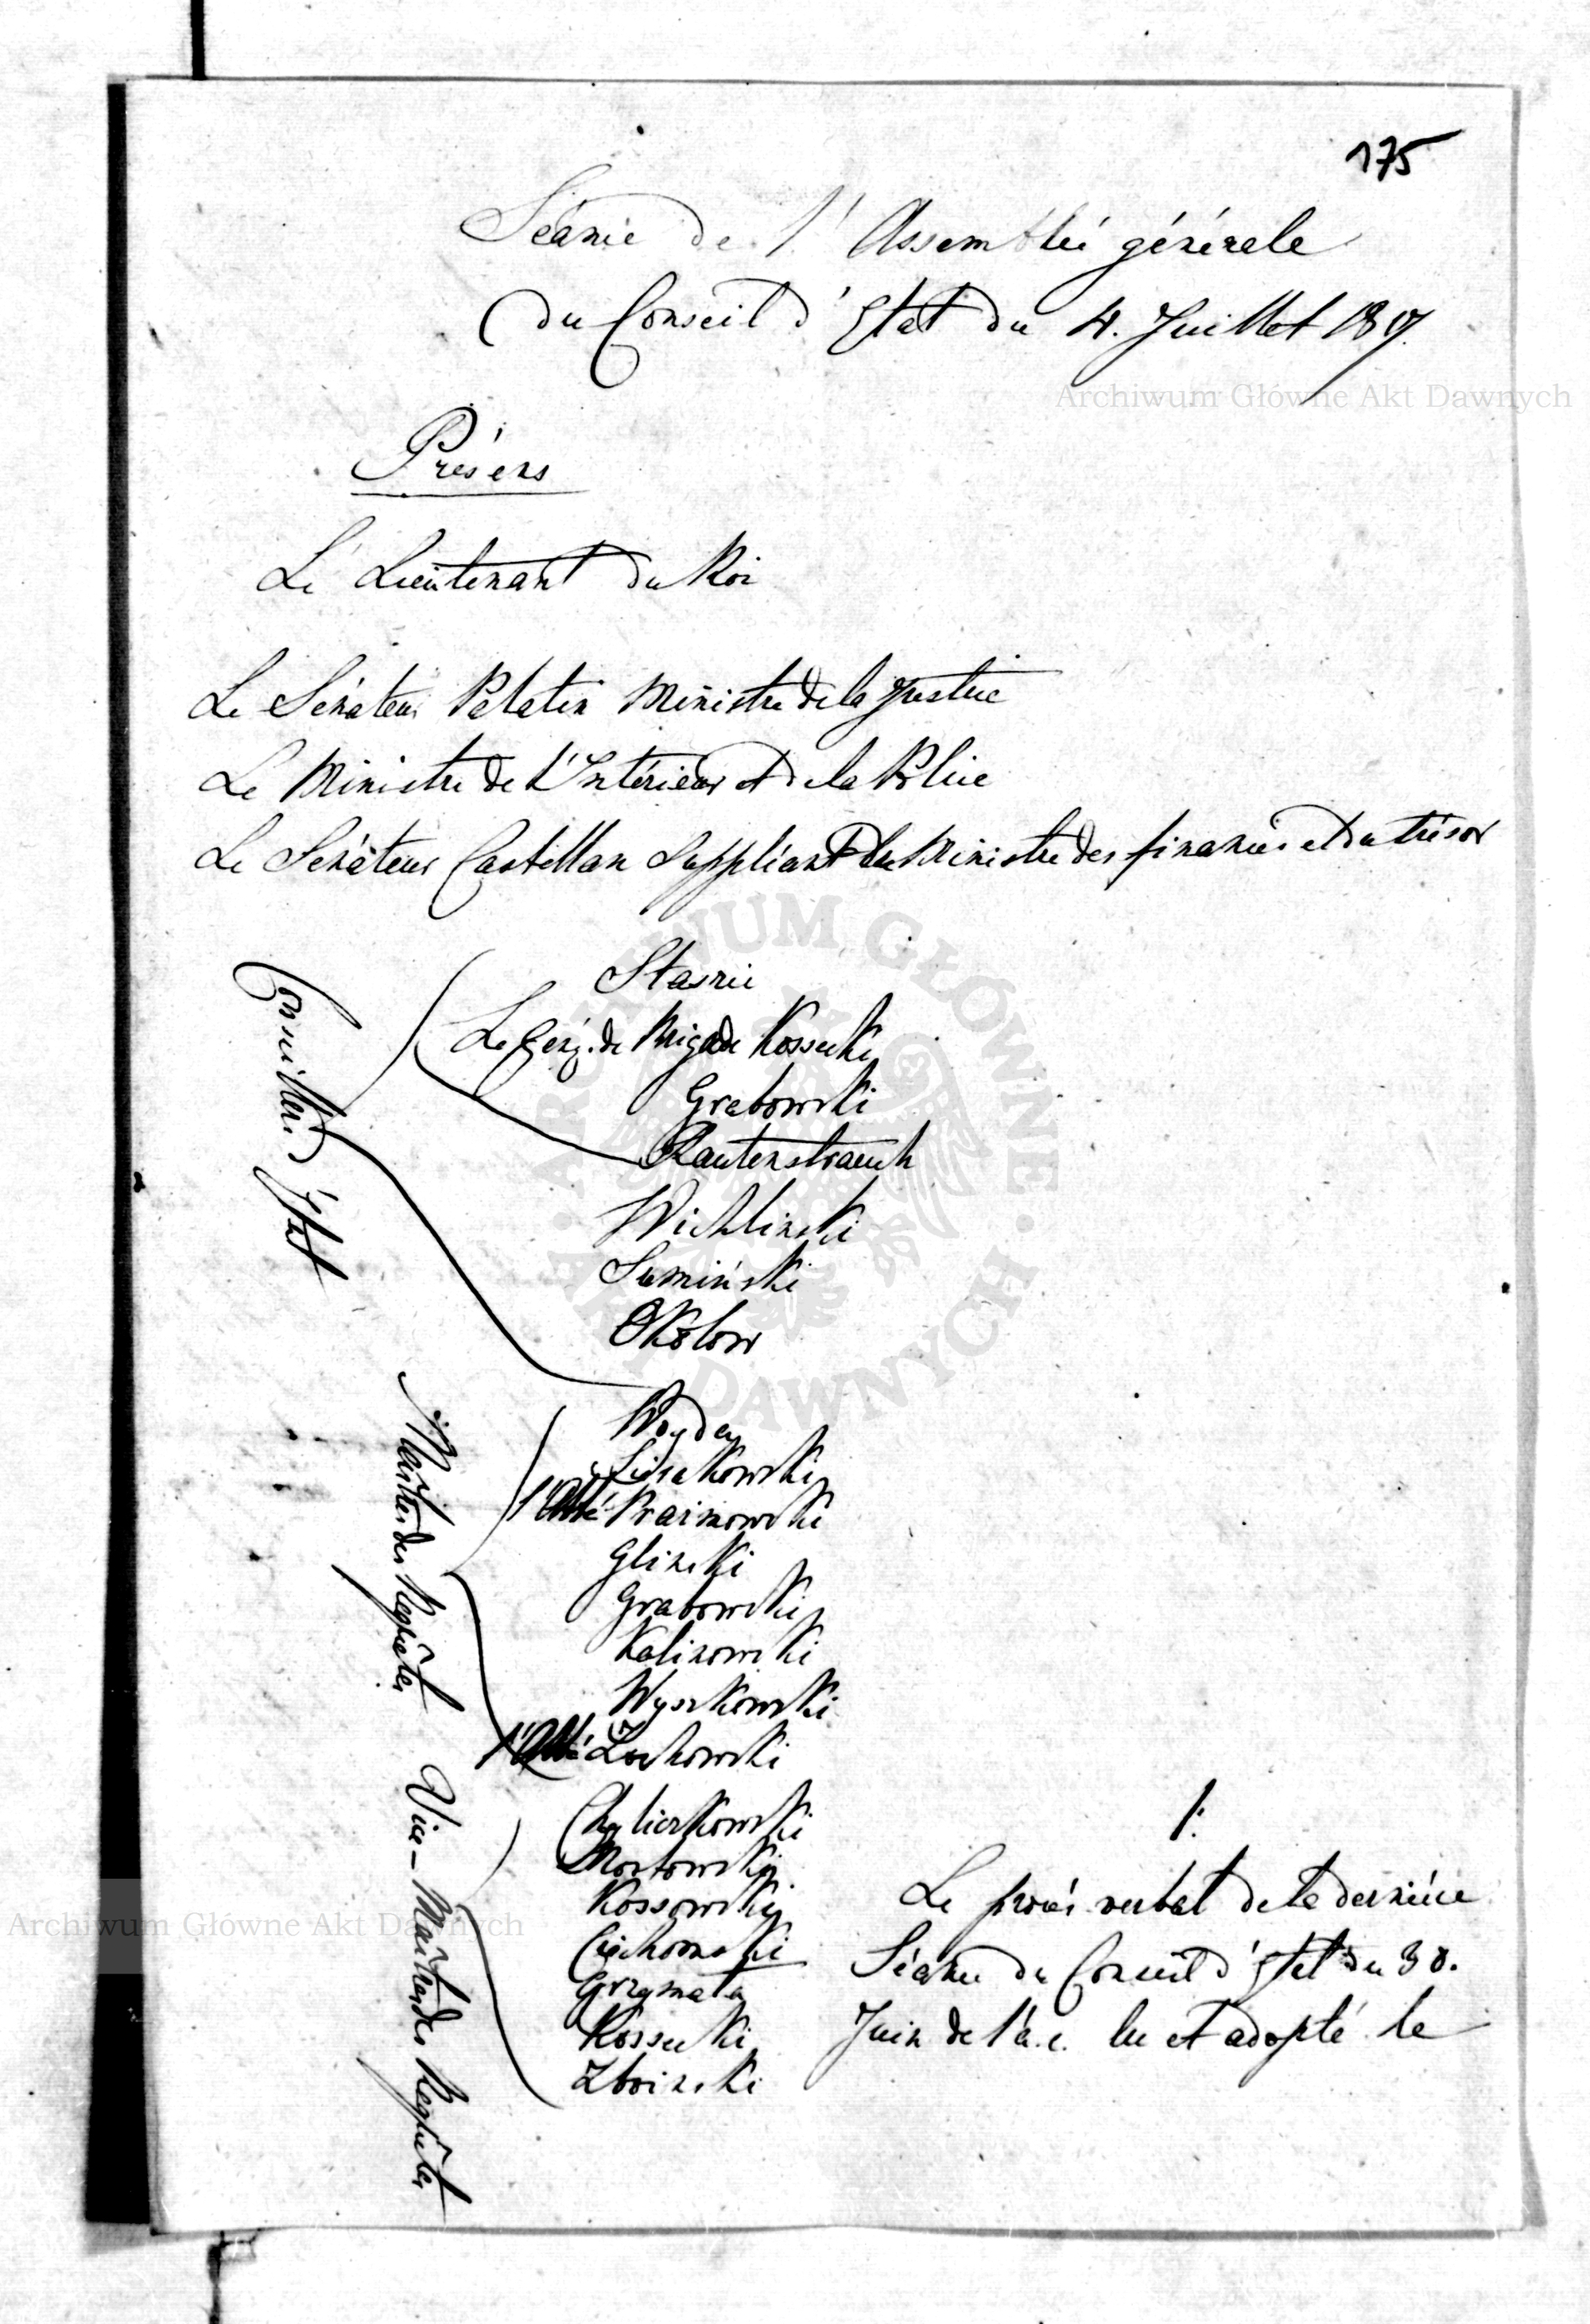 175
Séance de l'Assemblée générale
du Conseil d'Etat du 4. Juillet 1817.
Archiwum Główne Akt Dawnych
Présens
Le Lieutenant du Roi
Le Sénateur Palatin Ministre de la Justice
Le Ministre de l'Intérieur et de la Police
Le Sénateur Castellan Suppléant du Ministre des finances et du trésor
ARCHIWUM GŁÓWNE AKT DAWNYCH
Conseillers d'Etat
Staszic
Le Gén. de Brigade Kossecki
Grabowski
Rautenstrauch
Wichlinski
Sumiński
Okołow
Maitres des Requêtes
Woyda
Lisakowski
l'Abbé Prazmowski
Glinski
Grabowski
Kalinowski
Wyszkowski
l'Abbé Zochowski
Vice-Maitres des Requêtes
Chyliczkowski
Mostowski
Kossowski
Cichowski
Grzymała
Kossecki
Zboinski
1.
Le procès verbal de la dernière
Archiwum Główne Akt Dawnych
Séance du Conseil d'Etat du 30.
Juin de l'a.c. lu et adopté le